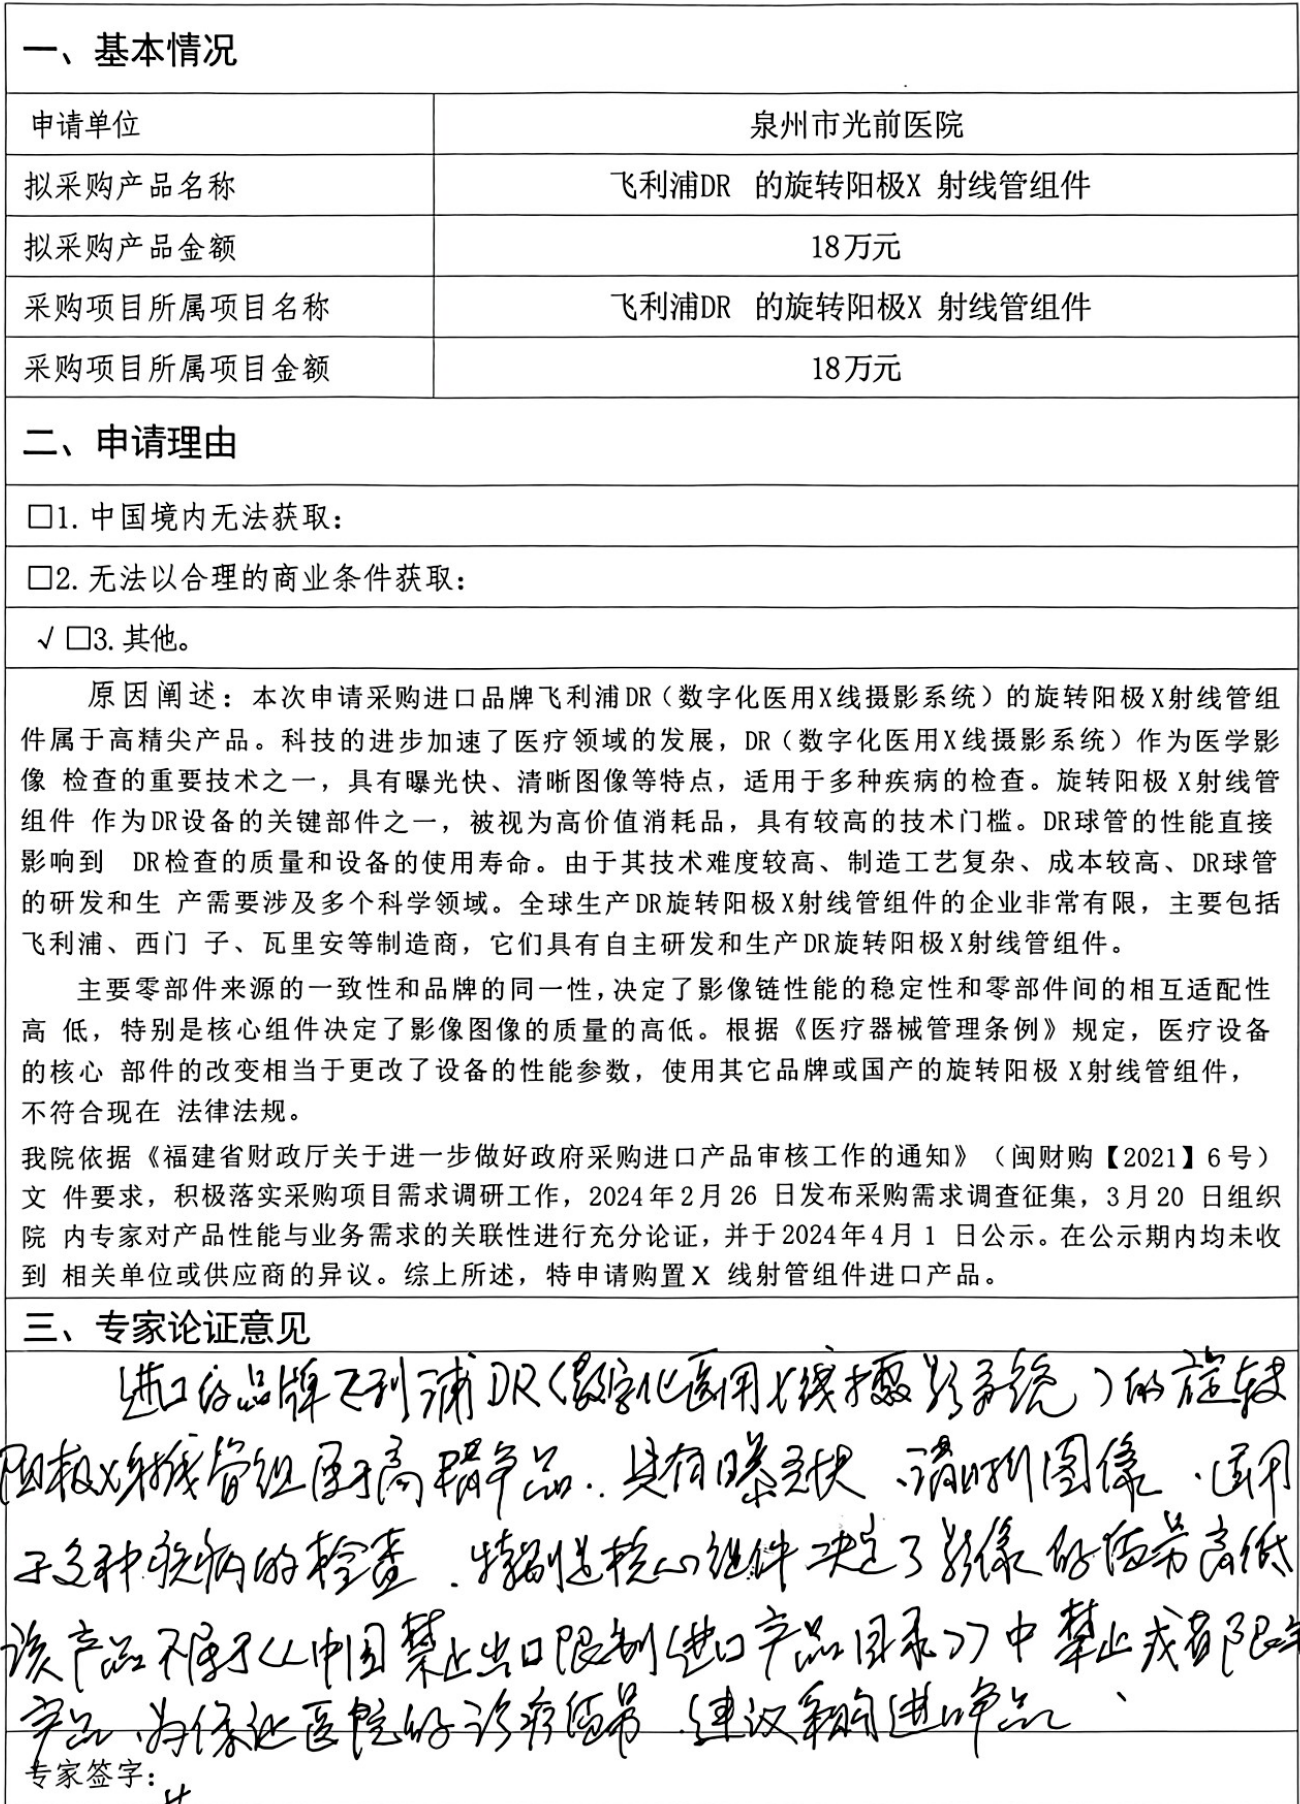 一、基本情况
申请单位 泉州市光前医院
拟采购产品名称 飞利浦DR 的旋转阳极X 射线管组件
拟采购产品金额 18万元
采购项目所属项目名称 飞利浦DR 的旋转阳极X 射线管组件
采购项目所属项目金额 18万元
二、申请理由
□1.中国境内无法获取：
□2.无法以合理的商业条件获取：
√□3.其他。
原因阐述：本次申请采购进口品牌飞利浦DR（数字化医用X线摄影系统）的旋转阳极X射线管组
件属于高精尖产品。科技的进步加速了医疗领域的发展，DR（数字化医用X线摄影系统）作为医学影
像 检查的重要技术之一，具有曝光快、清晰图像等特点，适用于多种疾病的检查。旋转阳极 X射线管
组件 作为DR设备的关键部件之一，被视为高价值消耗品，具有较高的技术门槛。DR球管的性能直接
影响到 DR检查的质量和设备的使用寿命。由于其技术难度较高、制造工艺复杂、成本较高、DR球管
的研发和生 产需要涉及多个科学领域。全球生产DR旋转阳极X射线管组件的企业非常有限，主要包括
飞利浦、西门 子、瓦里安等制造商，它们具有自主研发和生产DR旋转阳极X射线管组件。
主要零部件来源的一致性和品牌的同一性,决定了影像链性能的稳定性和零部件间的相互适配性
高 低，特别是核心组件决定了影像图像的质量的高低。根据《医疗器械管理条例》规定，医疗设备
的核心 部件的改变相当于更改了设备的性能参数，使用其它品牌或国产的旋转阳极 X射线管组件，
不符合现在 法律法规。
我院依据《福建省财政厅关于进一步做好政府采购进口产品审核工作的通知》（闽财购【2021】6号）
文 件要求，积极落实采购项目需求调研工作，2024年2月26 日发布采购需求调查征集，3月20 日组织
院 内专家对产品性能与业务需求的关联性进行充分论证，并于2024年4月1 日公示。在公示期内均未收
到 相关单位或供应商的异议。综上所述，特申请购置X 线射管组件进口产品。
三、专家论证意见
进口的品牌飞利浦DR（数字化医用X线摄影系统）的旋转
阳极X射线管组件属于高精产品．具有曝光快、清晰图像、适用
于多种疾病的检查．特别是核心组件决定了影像的质量高低
该产品不属于《中国禁止出口限制进口产品目录》中禁止或者限制
产品．为保证医院的诊疗质量．建议采购进口产品、
专家签字：